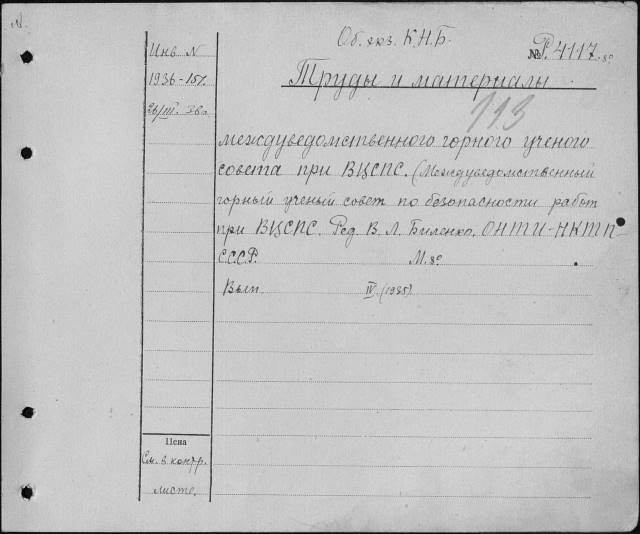 Об. экз. К.Н.Б.
№ Р4117.8º
Инв. N
1936-157.
26/III. 36.
Труды и материалы
113
междуведомственного горного ученого
совета при ВЦСПС. (Междуведомственный
горный ученый совет по безопасности работ
при ВЦСПС. Ред. В. Л. Биленко. ОНТИ-НКТП-
СССР. М. 8º
Вып. IV. (1935).
Цена
См. в контр.
листе.